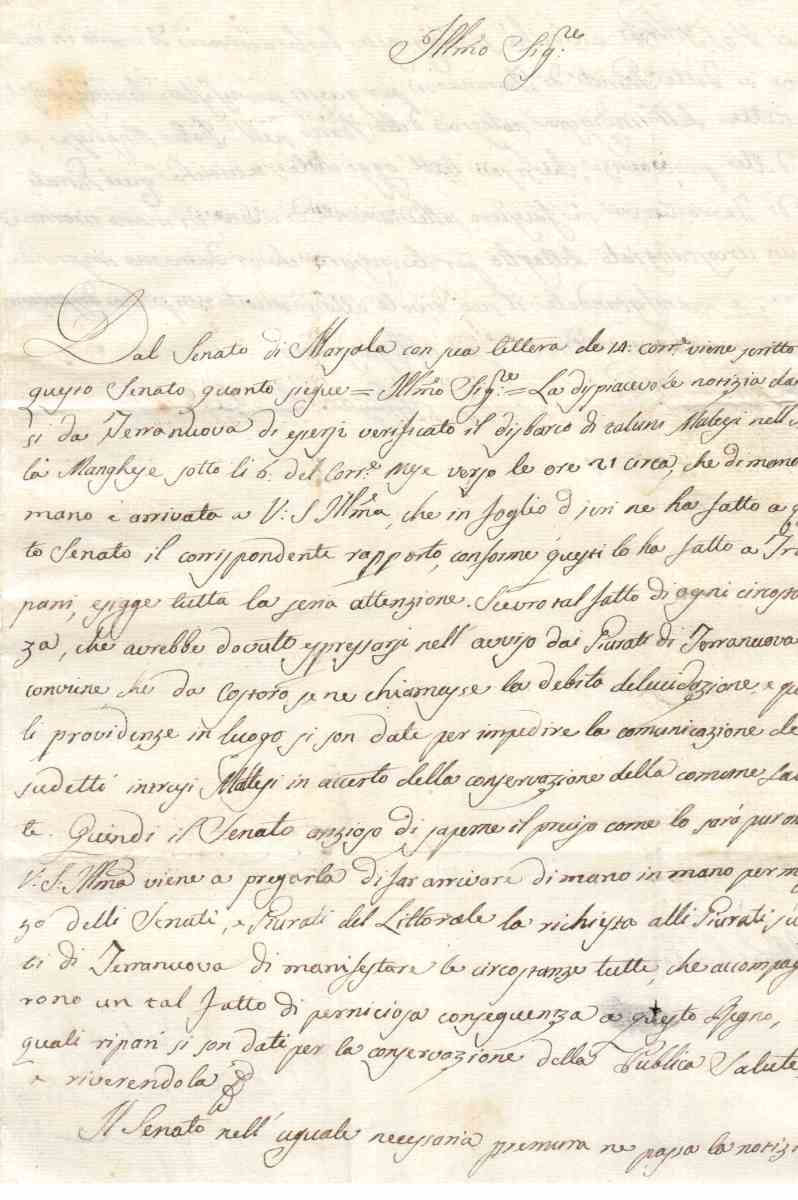 Illmo Sig:re
Dal Senato di Marsala con sua lettera de 14: corr:e viene scritto
questo Senato quanto siegue = Illmo Sig:re = La dispiacevole notizia da
si da Terranuova di essersi verificato il disbarco di taluni Maltesi nell'
la Manghese sotto li 6: del Corr:e Mese verso le ore 21 circa, che di mano
mano è arrivata a V:S Illma, che in foglio d jeri ne ha fatto a q
to Senato il corrispondente rapporto, conforme questi lo ha fatto a Tra
pani, esigge tutta la seria attenzione. Scevro tal fatto di ogni circosta
za, che avrebbe dovuto espressarsi nell'avviso dai Giurati di Terranuova
conviene che da Costoro se ne chiamasse la debita delucidazione, e qu
li providenze in luogo si son date per impedire la comunicazione de
sudetti intrusi Maltesi in accerto della conservazione della comune Sa
te. Quindi il Senato anzioso di saperne il preciso come lo sarà pur an
V:S.Illma viene a pregarla di far arrivare di mano in mano per m
zo delli Senati, e Giurati del Littorale la richiesta alli Giurati su
ti di Terranuova di manifestare le circostanze tutte, che accompag
rono un tal fatto di perniciosa conseguenza a questo Regno,
quali ripari si son dati per la conservazione della Publica Salute
e riverendola
Il Senato nell'uguale necessaria premura ne passa la notizi